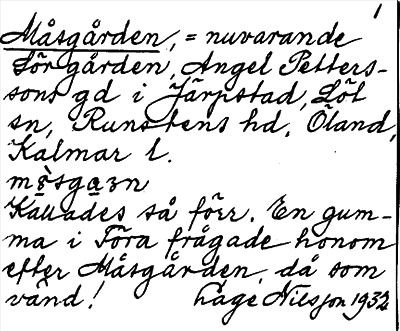 1
Måsgården, = nuvarande
Sörgården, Angel Petters-
sons gd i Järpstad, Löt
sn, Runstens hd, Öland,
Kalmar l.
Kallades så förr. En gum-
ma i Töra frågade honom
efter Måsgården, då som
vänd! Lage Nilsson 1932